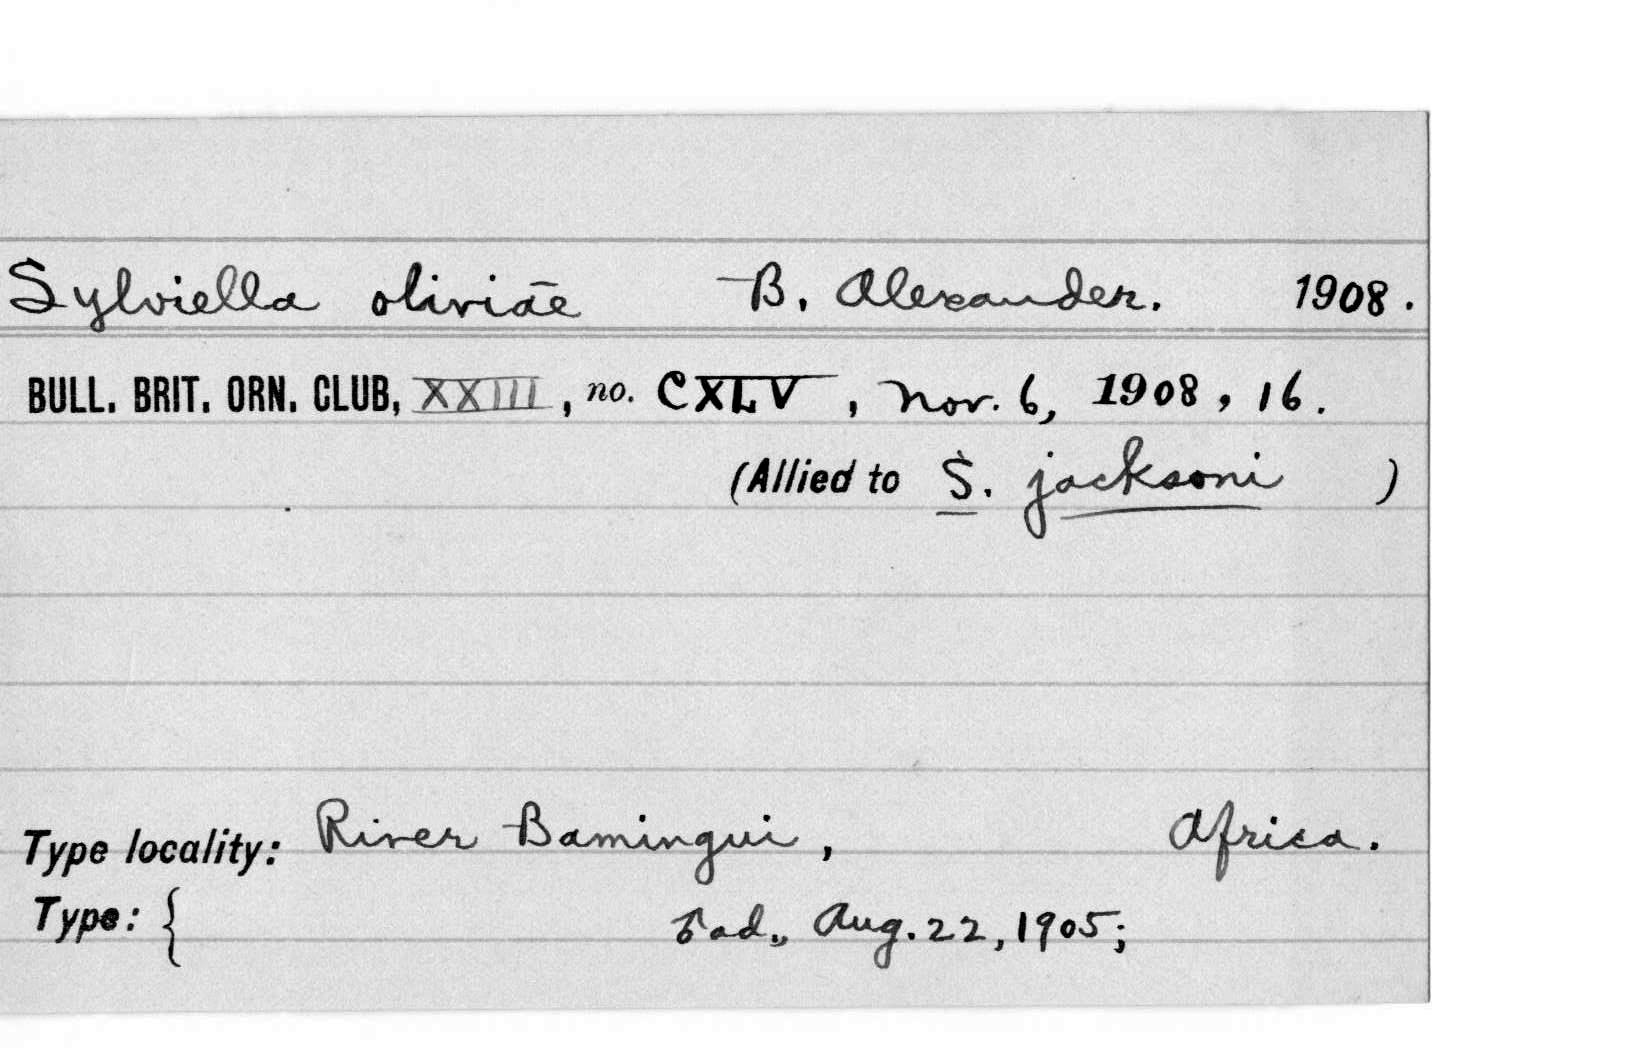 Sylviella oliviae B. Alexander. 1908.
BULL. BRIT. ORN. CLUB, XXIII, no. CXLV, Nov. 6, 1908, 16.
(Allied to S. jacksoni )
Type locality: River Bamingui, Africa.
Type: { ♂ ad., Aug. 22, 1905;